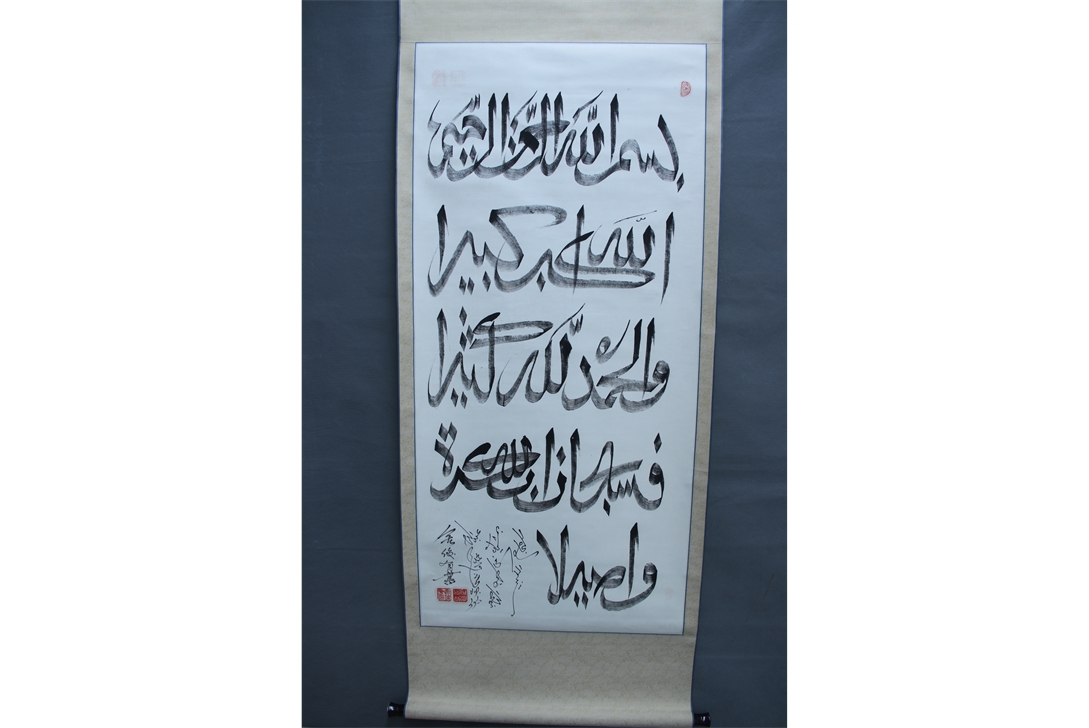 بسم الله الرحمن الرحيم
الله اكبر كبيرا
والحمد لله كثيرا
فسبحان الله بكرة
واصيلا